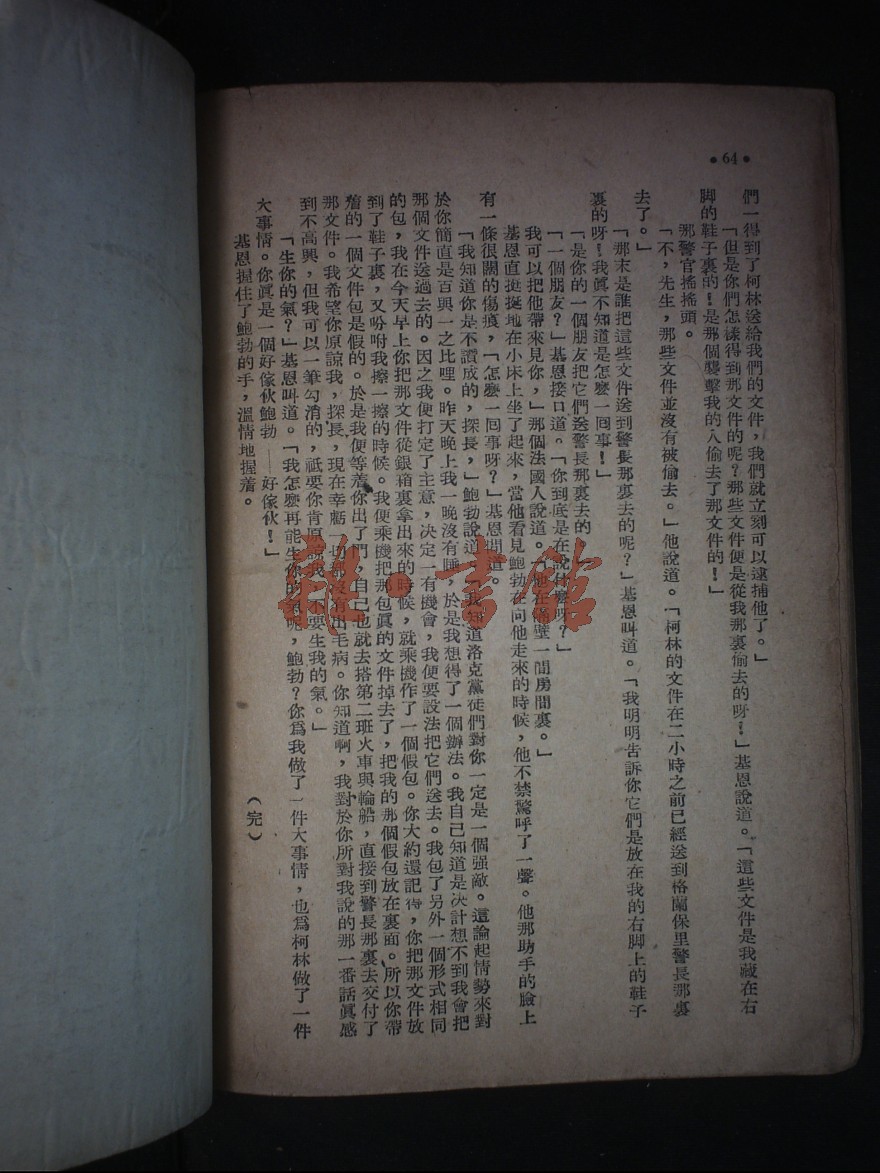 •64•
們一得到了柯林送給我們的文件，我們就立刻可以逮捕他了。」
「但是你們怎樣得到那文件的呢？那些文件便是從我那裏偷去的呀！」基恩說道。「這些文件是我藏在右
脚的鞋子裏的！是那個襲擊我的人偷去了那文件的！」
那警官搖搖頭。
「不，先生，那些文件並沒有被偷去。」他說道。「柯林的文件在二小時之前已經送到格蘭保里警長那裏
去了。」
「那末是誰把這些文件送到警長那裏去的呢？」基恩叫道。「我明明告訴你它們是放在我的右脚上的鞋子
裏的呀！我眞不知道是怎麽一囘事！」
「是你的一個朋友把它們送警長那裏去的
「一個朋友？」基恩接口道。「你到底是在說什麽呀？」
我可以把他帶來見你，」那個法國人說道。「他在隔壁一間房間裏。」
基恩直挺挺地在小床上坐了起來，當他看見鮑勃在向他走來的時候，他不禁驚呼了一聲。他那助手的臉上
有一條很闊的傷痕，「怎麽一囘事呀？」基恩問道。
「我知道你是不讚成的，探長，」鮑勃說道「我知道洛克黨徒們對你一定是一個强敵。還論起情勢來對
於你簡直是百與一之比哩。昨天晚上我一晚沒有睡，於是我想得了一個辦法。我自己知道是決計想不到我會把
那個文件送過去的。因之我便打定了主意，决定一有機會，我便要設法把它們送去。我包了另外一個形式相同
的包，我在今天早上你把那文件從銀箱裏拿出來的時候，就乘機作了一個假包。你大約還記得，你把那文件放
到了鞋子裏，又吩咐我擦一擦的時候。我便乘機把那包眞的文件掉去了，把我的那個假包放在裏面。所以你帶
着的一個文件包是假的。於是我便等着你出了門，自己也就去搭第二班火車與輪船，直接到警長那裏去交付了
那文件。我希望你原諒我，探長，現在幸虧一切都沒有出毛病。你知道啊，我對於你所對我說的那一番話眞感
到不高興，但我可以一筆勾消的，祗要你肯原諒我，不要生我的氣。」
「生你的氣？」基恩叫道。「我怎麽再能生你的氣呢，鮑勃？你爲我做了一件大事情，也爲柯林做了一件
大事情。你眞是一個好傢伙鮑勃——好傢伙！」
基恩握住了鮑勃的手，溫情地握着。
（完）
雜書館